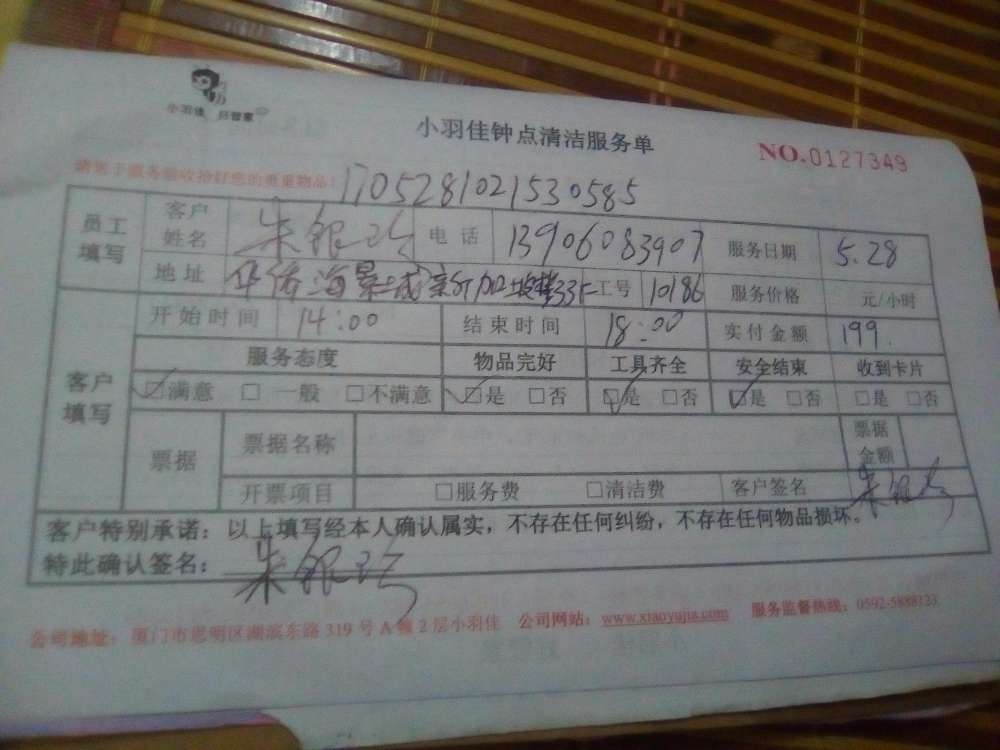 小羽佳 好管家
小羽佳钟点清洁服务单
NO.0127349
请您于服务前收拾好您的贵重物品!
1705281021530585
员工填写 客户姓名 朱银 电话 13906083907 服务日期 5.28
地址 华侨海景城新加坡楼33 工号 10186 服务价格 元/小时
客户填写 开始时间 14:00 结束时间 18:00 实付金额 199.
服务态度 物品完好 工具齐全 安全结束 收到卡片
☑满意 □一般 □不满意 ☑是 □否 ☑是 □否 ☑是 □否 □是 □否
票据 票据名称 票据金额
开票项目 □服务费 □清洁费 客户签名 朱银
客户特别承诺:以上填写经本人确认属实,不存在任何纠纷,不存在任何物品损坏。
特此确认签名: 朱银
公司地址:厦门市思明区湖滨东路319号A幢2层小羽佳 公司网站:www.xiaoyujia.com 服务监督热线:0592-5888123